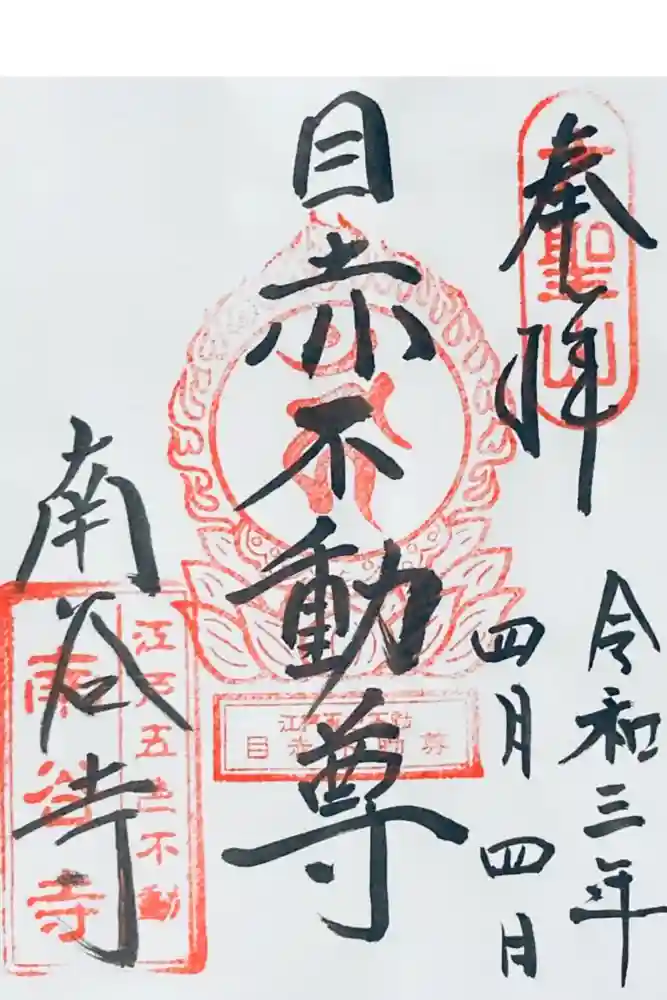 奉拝
聖山
令和三年
四月四日
目赤不動尊
江戸五色不動
目赤不動尊
南谷寺
江戸五色不動
南谷寺